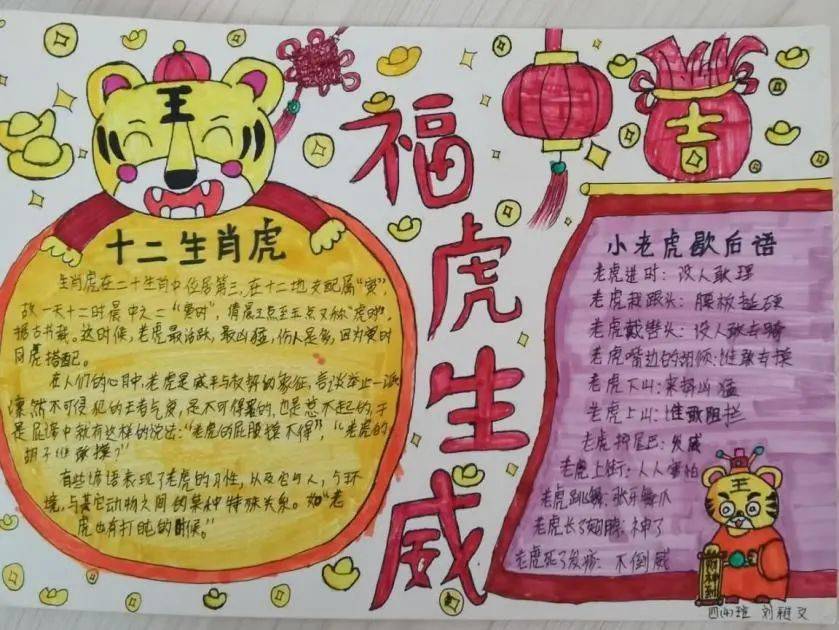 王
福虎生威
吉
十二生肖虎
生肖虎在二十生肖中位居第三,在十二地支配属“寅”,
故一天十二时辰中之二“寅时”,清晨三点至五点又称“虎时”,
据古书载。这时候,老虎最活跃,最凶猛,伤人是多,因为寅时
同虎搭配。
在人们的心目中,老虎是威严与权势的象征,言谈举止一派
凛然不可侵犯的王者气度,是不可得罪的,也是惹不起的,于
是屁谚中就有这样的说法:“老虎的屁股摸不得”,“老虎的
胡子谁敢摸?”
有些谚语表现了老虎的习性,以及它与人,与环
境,与其它动物之间的某种特殊关系。如“老
虎也有打盹的时候。”
小老虎歇后语
老虎进村:没人敢理
老虎栽跟头:腰板挺硬
老虎戴辔头:没人敢去骑
老虎嘴边的胡须:谁敢去摸
老虎下山:来势凶猛
老虎上山:谁敢阻拦
老虎拐尾巴:发威
老虎上街:人人害怕
老虎跳舞:张牙舞爪
老虎长了翅膀:神了
老虎死了 不倒威
王
财神到
四(4)班 刘雅文